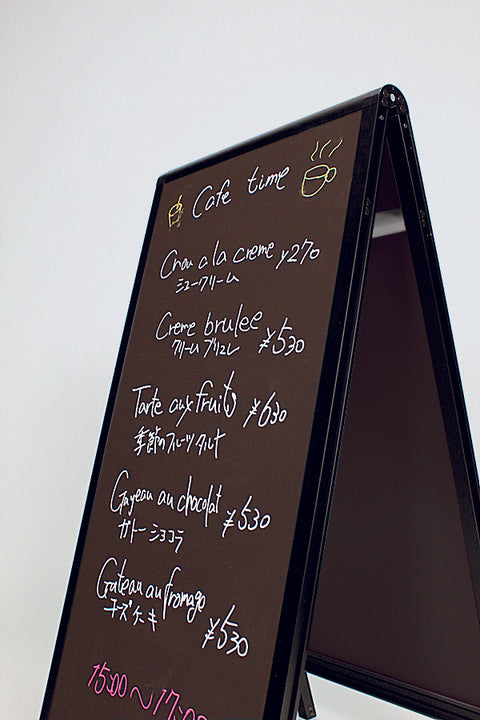 Cafe time
Chou a la creme ¥270
シュークリーム
Creme brulee
クリームブリュレ ¥530
Tarte aux fruits ¥630
季節のフルーツタルト
Gayeau au chocolat
ガトーショコラ ¥530
Gateau au fromage
チーズケーキ ¥530
15:00〜17:00